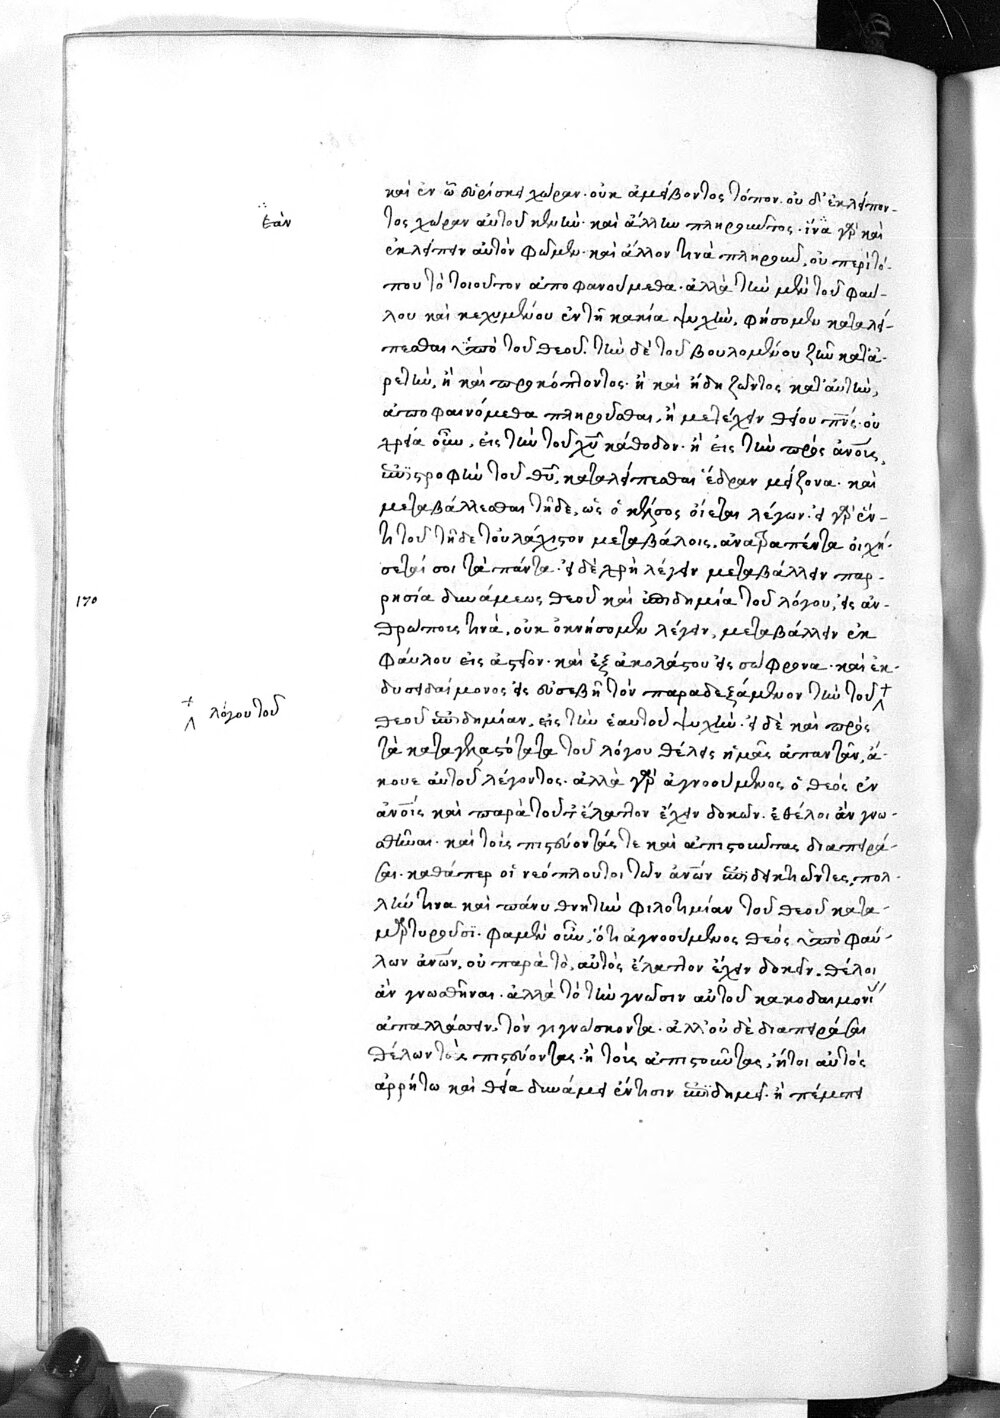 καὶ ἐν ᾧ εὑρίσκει χώραν· οὐκ ἀμείβοντος τόπον· οὐ δ' ἐκλείπον-
ἐὰν
τος χώραν αὐτοῦ κενὴν· καὶ ἄλλην πληροῦντος· ἵνα γὰρ καὶ
ἐκλείπειν αὐτὸν φῶμεν· καὶ ἄλλον τινὰ πληροῦν, οὐ περὶ τό-
που τὸ τοιοῦτον ἀποφανούμεθα· ἀλλὰ τὴν μὲν τοῦ φαύ-
λου καὶ κεχυμένου ἐν τῇ κακία ψυχὴν, φήσομεν καταλεί-
πεσθαι ὑπὸ τοῦ θεοῦ. τὴν δὲ τοῦ βουλομένου ζῆν κατ' ἀ-
ρετὴν, ἢ καὶ προκόπτοντος· ἢ καὶ ἤδη ζῶντος κατ' αὐτὴν,
ἀποφαινόμεθα πληροῦσθαι, ἢ μετέχειν θείου πνς· οὐ
χρεία οὖν, εἰς τὴν τοῦ χῦ κάθοδον· ἢ εἰς τὴν πρὸς ἀνοὺς,
ἐπιστροφὴν τοῦ θῦ, καταλείπεσθαι ἕδραν μείζονα· καὶ
μεταβάλλεσθαι τῇδε, ὡς ὁ κέλσος οἴεται λέγων· εἰ γὰρ ἕν-
τι τοῦ τῇδε τοὐλάχιστον μεταβάλοις, ἀνατραπέντα οἰχή-
σεταί σοι τὰ πάντα· εἰ δὲ χρὴ λέγειν μεταβάλλειν παρ-
170
ρησία δυνάμεως θεοῦ καὶ ἐπιδημία τοῦ λόγου, εἰς ἀν-
θρώποις τινὰ, οὐκ ὀκνήσομεν λέγειν, μεταβάλλειν ἐκ
φαύλου εἰς ἀστεῖον· καὶ ἐξ ἀκολάστου εἰς σώφρονα· καὶ ἐκ
δυσιδαίμονος εἰς εὐσεβῆ τὸν παραδεξάμενον τὴν τοῦ
λόγου τοῦ
θεοῦ ἐπιδημίαν, εἰς τὴν ἑαυτοῦ ψυχὴν· εἰ δὲ καὶ πρὸς
τὰ καταγελαστότατα τοῦ λόγου θέλεις ἡμᾶς ἀπαντᾶν, ἄ-
κουε αὐτοῦ λέγοντος· ἀλλὰ γὰρ ἀγνοούμενος ὁ θεός ἐν
ἀνοῖς καὶ παρὰ τοῦτ' ἔλαττον ἔχειν δοκῶν· ἐθέλοι ἂν γνω-
σθῆναι· καὶ τοὺς πιστεύοντάς τε καὶ ἀπιστοῦντας διαπειρά-
σαι· καθάπερ οἱ νεόπλουτοι τῶν ἀνων ἐπιδεικτιῶντες, πολ-
λήν τινα καὶ πάνυ θνητὴν φιλοτιμίαν τοῦ θεοῦ κατα-
μαρτυροῦσι. φαμὲν οὖν, ὅτι ἀγνοούμενος θεὸς ὑπὸ φαύ-
λων ἀνων, οὐ παρὰ τὸ, αὐτὸς ἔλαττον ἔχειν δοκεῖν. θέλοι
ἂν γνωσθῆναι· ἀλλὰ τὸ τὴν γνῶσιν αὐτοῦ κακοδαιμονί
ἀπαλλάττειν, τὸν γιγνώσκοντα· ἀλλ' οὐ δὲ διαπειρᾶσαι
θέλων τοὺς πιστεύοντας· ἢ τοὺς ἀπιστοῦντας, ἤτοι αὐτὸς
ἀρρήτω καὶ θεία δυνάμει ἔν τισιν ἐπιδημεῖ· ἢ πέμπει